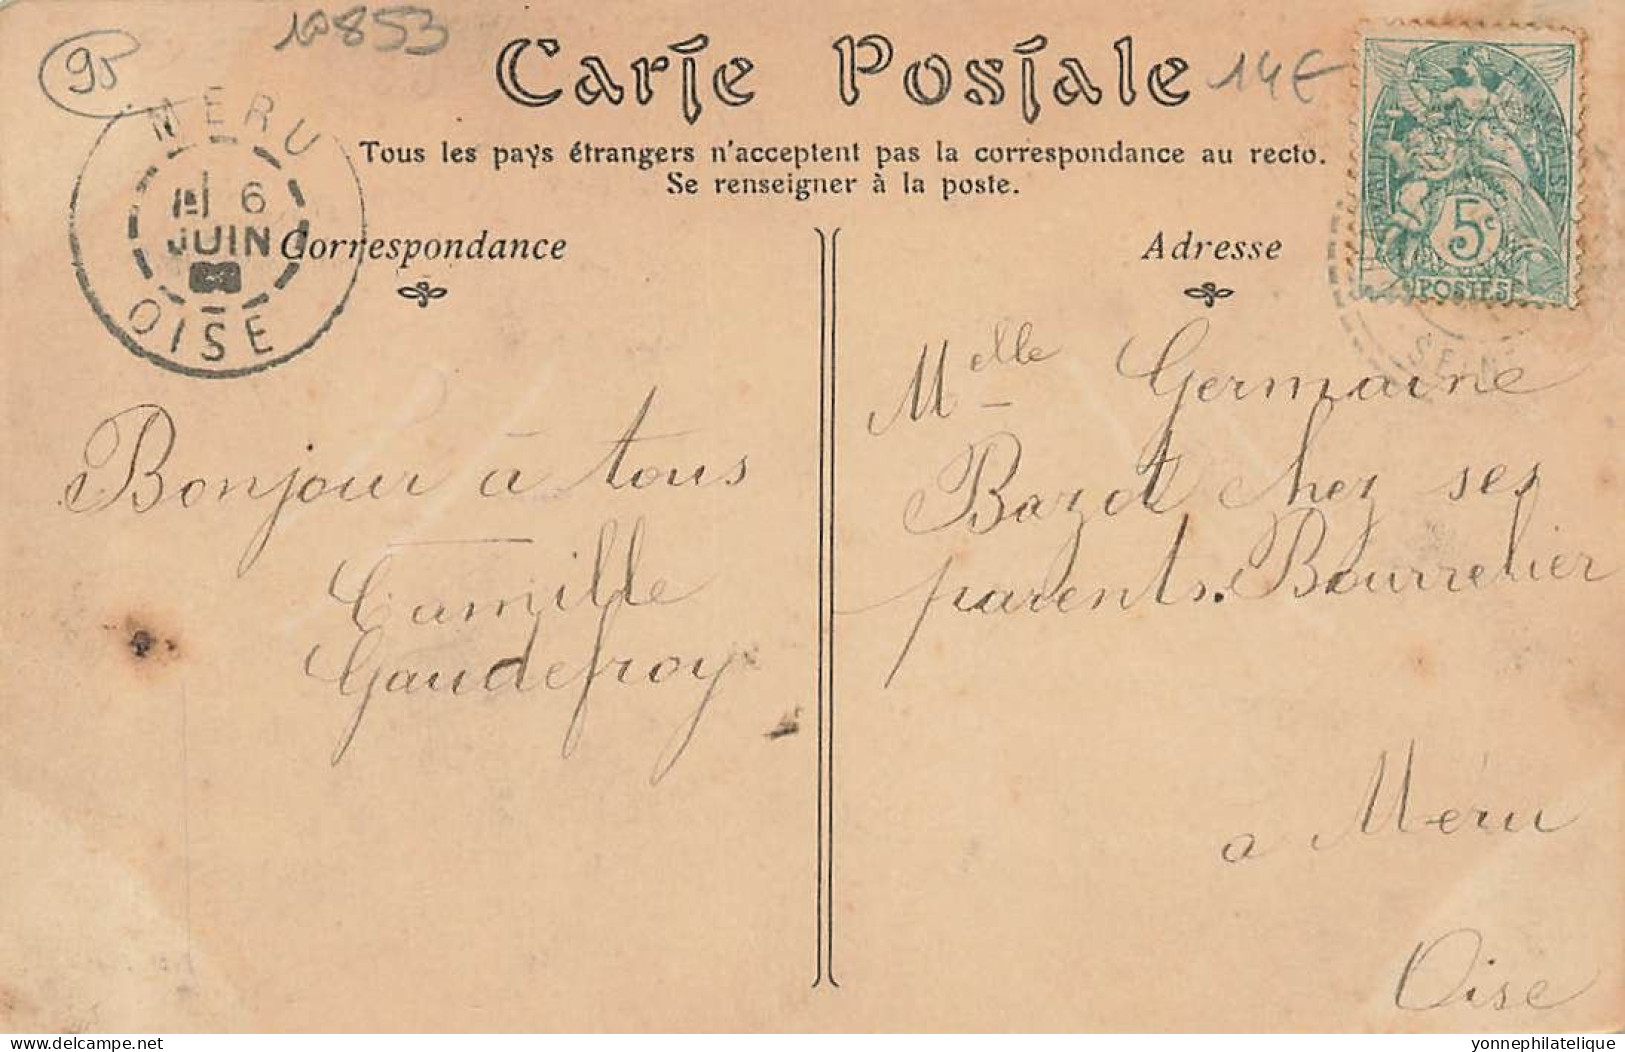 95
853
Carte Postale
14€
Tous les pays étrangers n'acceptent pas la correspondance au recto.
Se renseigner à la poste.
MERU
6
JUIN
OISE
RÉPUBLIQUE FRANÇAISE
5c
POSTES
Correspondance
Adresse
Bonjour à tous
Camille
Gaudefroy
Melle Germaine
Bazot chez ses
parents. Bourrelier
a Méru
Oise
delcampe.net
yonnephilatelique